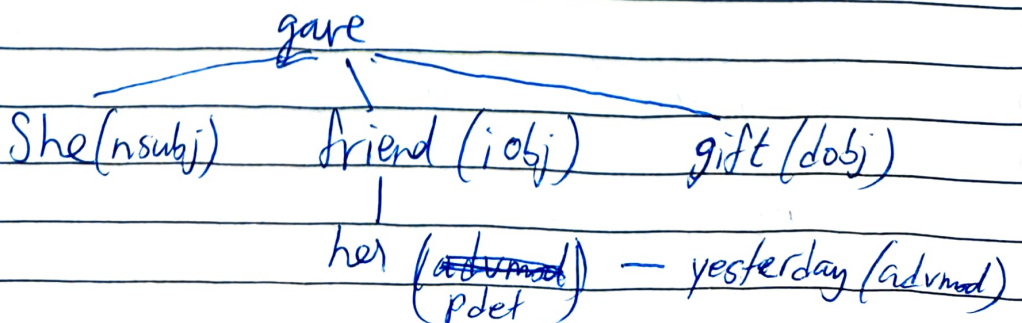 gave
She(nsubj) friend (iobj) gift (dobj)
her (pdet) — yesterday (advmod)